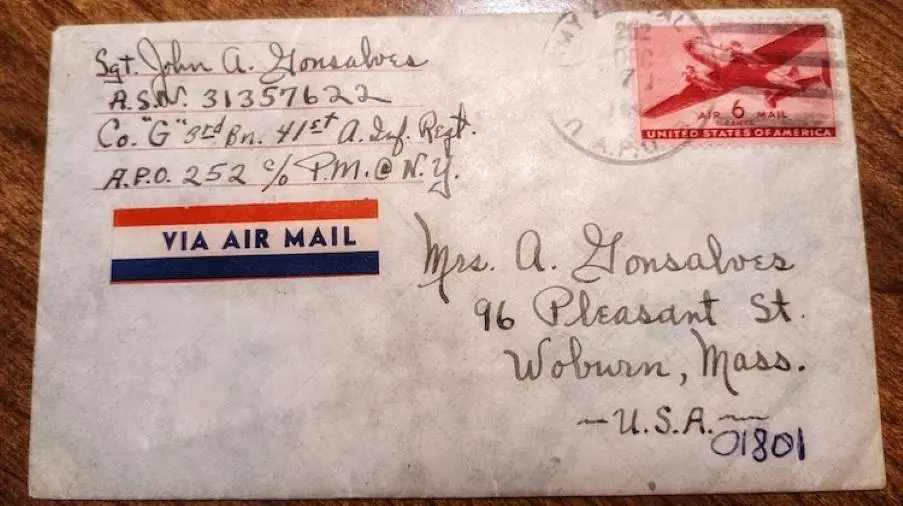 Sgt. John A. Gonsalves
A.S.N. 31357622
Co. "G" 3rd Bn. 41st A. Inf. Regt.
A.P.O. 252 c/o P.M. @ N.Y.
VIA AIR MAIL
A.P.O.
AIR 6 MAIL
CENTS
UNITED STATES OF AMERICA
Mrs. A. Gonsalves
96 Pleasant St.
Woburn, Mass.
~U.S.A.~
01801